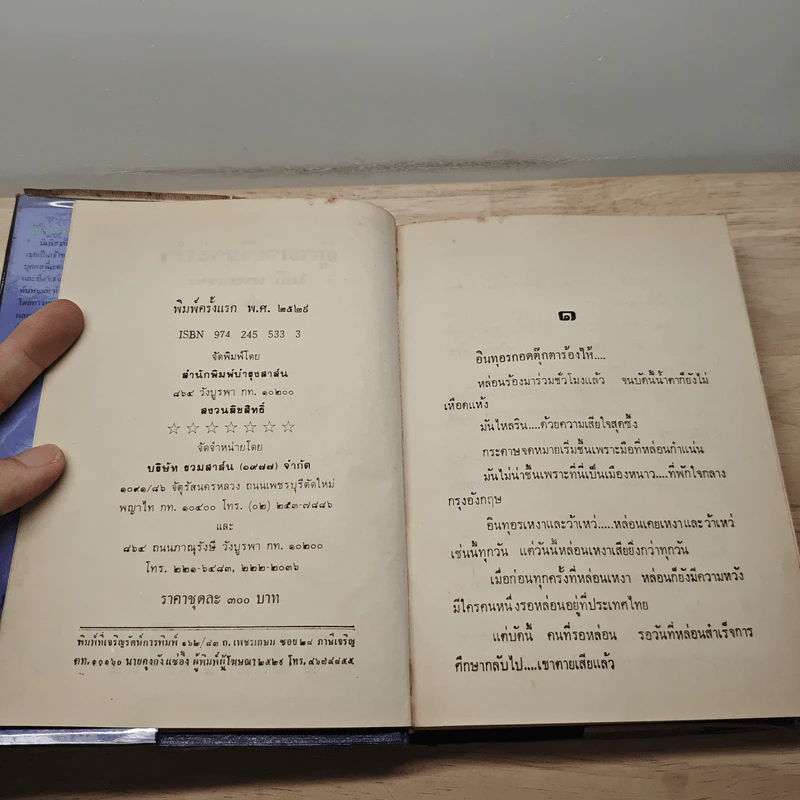 พิมพ์ครั้งแรก พ.ศ. ๒๕๒๙
ISBN 974 245 533 3
จัดพิมพ์โดย
สำนักพิมพ์บำรุงสาส์น
๘๖๔ วังบูรพา กท. ๑๐๒๐๐
สงวนลิขสิทธิ์
☆☆☆☆☆☆☆
จัดจำหน่ายโดย
บริษัท รวมสาส์น (๑๙๗๗) จำกัด
๑๐๙๑/๘๖ จัตุรัสนครหลวง ถนนเพชรบุรีตัดใหม่
พญาไท กท. ๑๐๔๐๐ โทร. (๐๒) ๒๕๓-๗๘๘๖
และ
๘๖๔ ถนนภาณุรังษี วังบูรพา กท. ๑๐๒๐๐
โทร. ๒๒๑-๖๔๘๓, ๒๒๒-๒๐๓๖
ราคาชุดละ ๓๐๐ บาท
พิมพ์ที่เจริญรัตน์การพิมพ์ ๑๖๒/๘๓ ถ. เพชรเกษม ซอย ๒๘ ภาษีเจริญ
กท. ๑๐๑๖๐ นายคุงกัง แซ่อึ้ง ผู้พิมพ์ผู้โฆษณา ๒๕๒๙ โทร. ๔๖๗๔๘๕๕
๑
อินทุอรกอดตุ๊กตาร้องไห้....
หล่อนร้องมาร่วมชั่วโมงแล้ว จนบัดนี้น้ำตาก็ยังไม่
เหือดแห้ง
มันไหลริน....ด้วยความเสียใจสุดซึ้ง
กระดาษจดหมายเริ่มชื้นเพราะมือที่หล่อนกำแน่น
มันไม่น่าชื้นเพราะที่นี่เป็นเมืองหนาว....ที่พักใจกลาง
กรุงอังกฤษ
อินทุอรเหงาและว้าเหว่.....หล่อนเคยเหงาและว้าเหว่
เช่นนี้ทุกวัน แต่วันนี้หล่อนเหงาเสียยิ่งกว่าทุกวัน
เมื่อก่อนทุกครั้งที่หล่อนเหงา หล่อนก็ยังมีความหวัง
มีใครคนหนึ่งรอหล่อนอยู่ที่ประเทศไทย
แต่บัดนี้ คนที่รอหล่อน รอวันที่หล่อนสำเร็จการ
ศึกษากลับไป....เขาตายเสียแล้ว